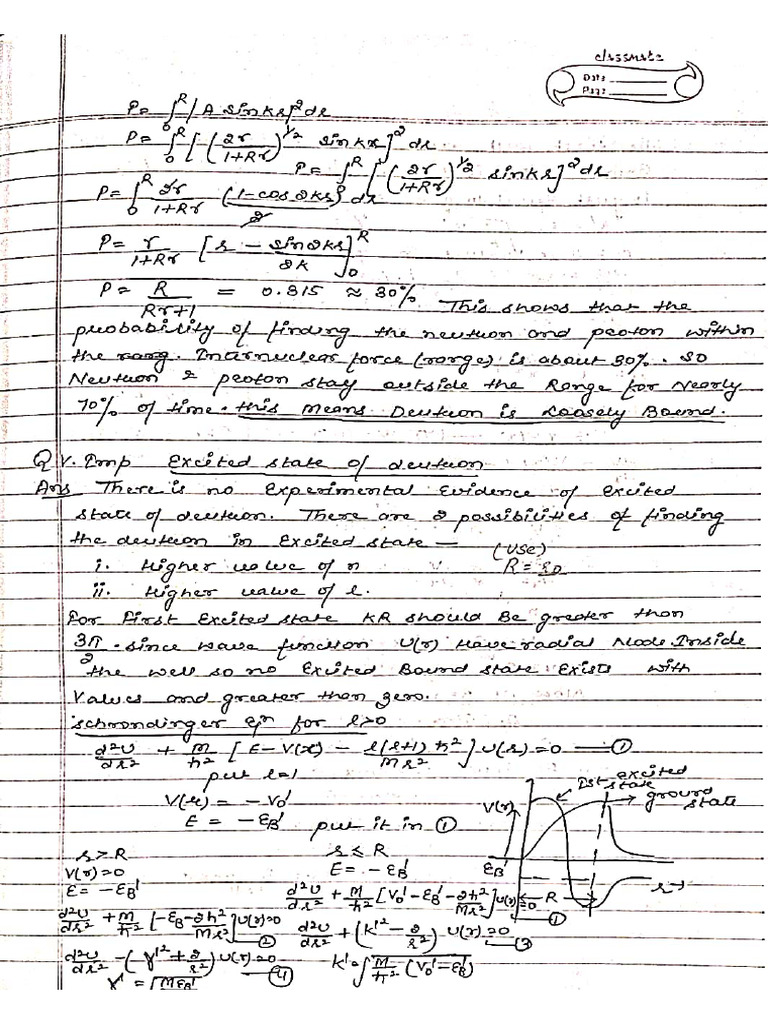 classmate
Date
Page
P= ∫₀ᴿ |A sinkr|² dr
P= ∫₀ᴿ [(2r/1+Rr)^1/2 sinkr]² dr
P= ∫₀ᴿ [(2r/1+Rr)^1/2 sinkr]² dr
P= ∫₀ᴿ 2r/1+Rr (1-cos2kr)/2 dr
P= r/1+Rr [r - sin2kr/2k]₀ᴿ
P= R/Rr+1 = 0.315 ≈ 30%
This shows that the
probability of finding the neutron and proton within
the rang. Internuclear force (range) is about 30%. So
Neutron & proton stay outside the Range for Nearly
70% of time. this Means Deutron is Loosely Bound.
Q V. Imp Excited state of deutron
Ans There is no Experimental Evidence of Excited
state of deutron. There are 2 possibilities of finding
the deutron in Excited state —
i. Higher value of n
(use) R = r0
ii. Higher value of l.
For First Excited state KR should Be greater than
3π/2. since wave function U(r) Have radial Node Inside
the well so no Excited Bound state Exists with
Values and greater than zero.
schrondinger eqn for l>0
d²U/dr² + M/ħ² [E - V(r) - l(l+1)ħ²/Mr²] U(r) = 0 — ①
put l=1
V(r) = - V₀'
E = - EB' put it in ①
r > R
V(r) = 0
E = - EB'
d²U/dr² + M/ħ² [-EB - 2ħ²/Mr²] U(r)=0 ②
d²U/dr² - (γ'² + 2/r²) U(r)=0 ④
γ' = √MEB'
r ≤ R
E = - EB'
d²U/dr² + M/ħ² [V₀' - EB' - 2ħ²/Mr²] U(r)=0 ①
d²U/dr² + (K'² - 2/r²) U(r) = 0 ③
K' = √M/ħ² (V₀' - EB')
Ist excited state
ground state
V(r)
EB'
R
r→